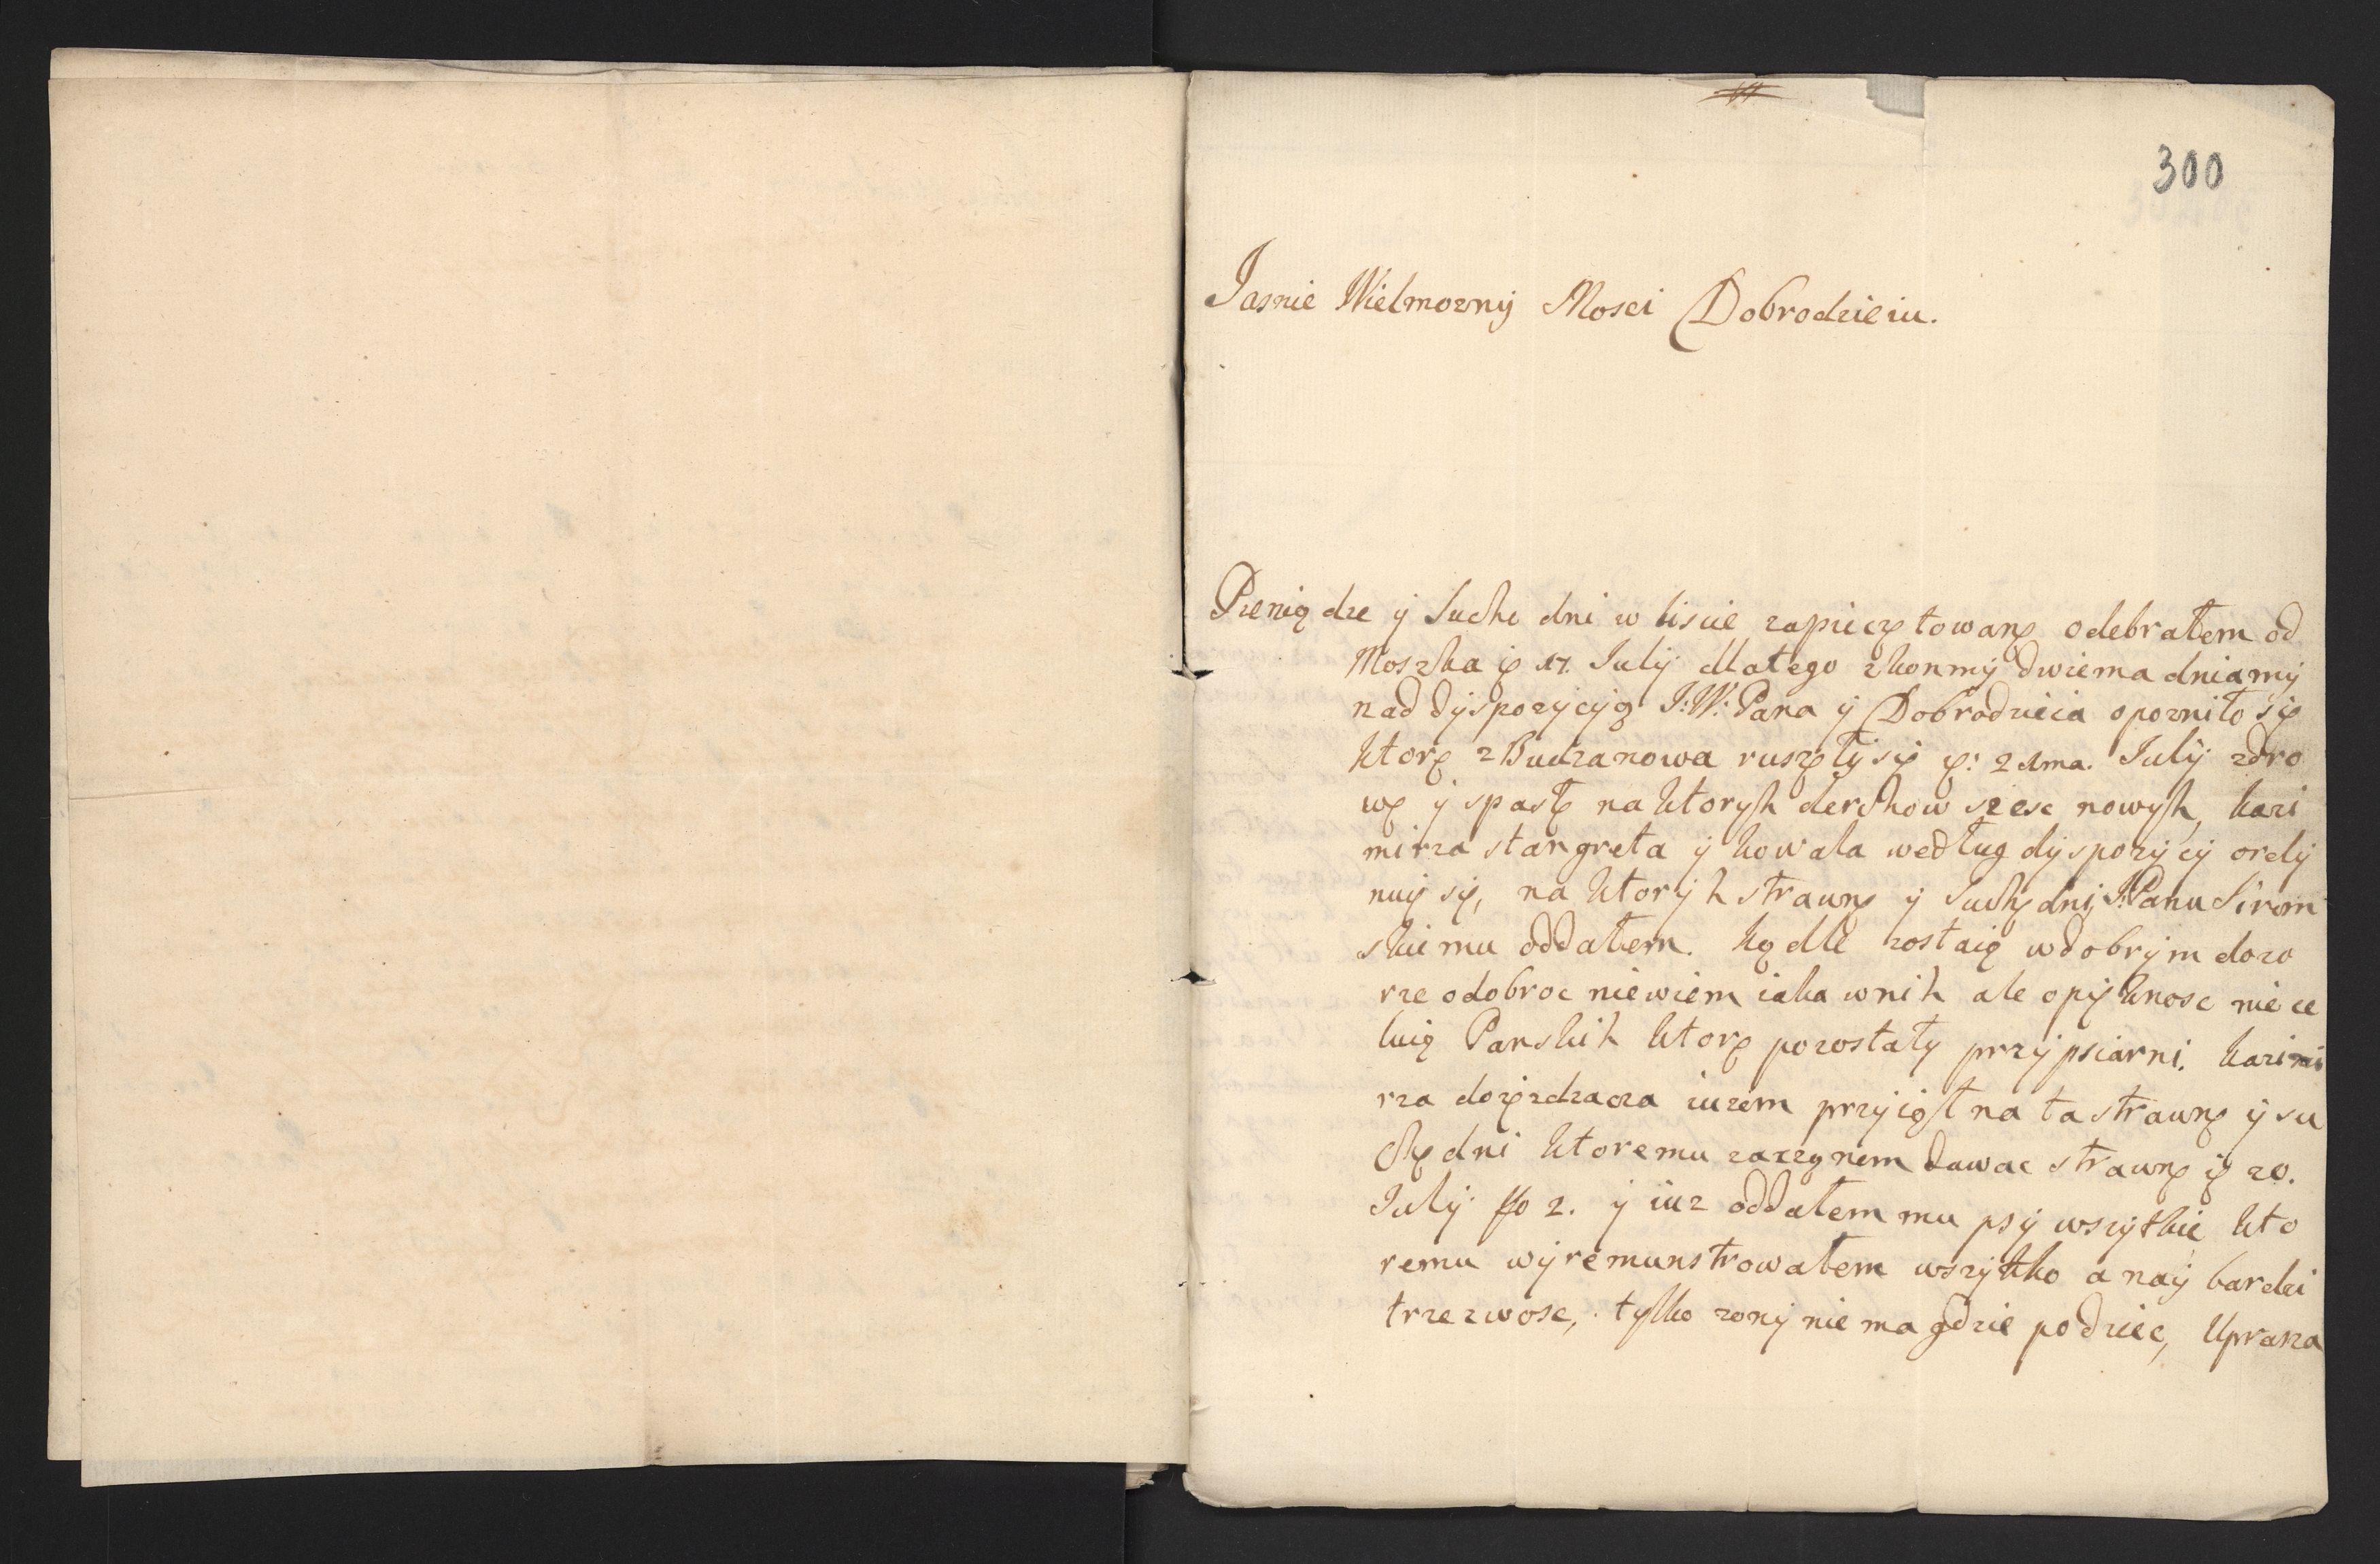 300
Jasnie Wielmozny Mosci Dobrodzieiu.
Pienią dze ÿ Suche dni w liscie zapieczętowanę odebrałem od
Moszka ię 17. Julÿ dlatego zkonmÿ dwiema dniamÿ
nad dÿspozÿcÿą J:W: Pana ÿ Dobrodzieia opoznilo się
ktorę z Budzanowa ruszęłÿ się ę: 21ma. Julÿ zdro
wę ÿ spasłę na ktorÿch derchow szesc nowÿch, kazi
mirza stangreta ÿ kowala według dÿspozÿcÿ ordÿ
nuię się, na ktorÿh strawnę ÿ Suchę dni, J:Panu Sirom
skiemu oddałem. kądle zostaią wdobrÿm dozo
rze odobroc niewiem iaka wnih ale opięknosc nie ce
luią Panskih ktorę pozostałÿ przÿ psiarni. kazimi
rza doięzdzacza iuzem przÿiął na ta strawnę ÿ su
chę dni ktoremu zaczynem dawac strawnę ię 20.
Julÿ fl0 2. ÿ iuz oddałem mu psÿ wszÿtkie kto
remu wÿremunstrowałem wszÿtko a naÿ bardzi
trzezwosc, tylko zonÿ nie ma gdzie podziec, Uprasza